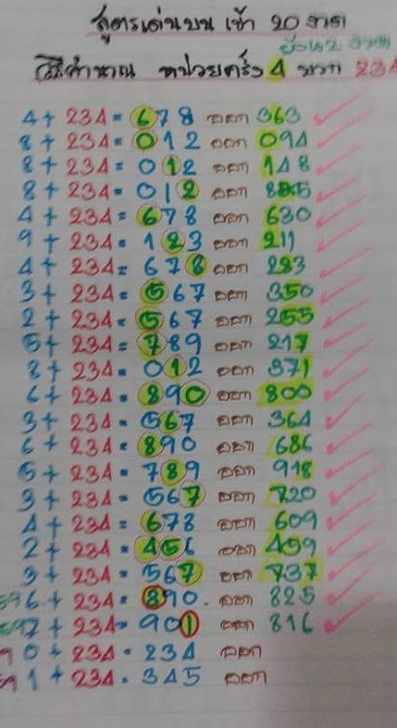 สูตรเด่นบน เข้า 20 งวด
ย้อน 2 งวด
วิธีคำนวณ หน่วยครั้ง 4 บวก 234
4 + 234 = 678 ออก 363
8 + 234 = 012 ออก 094
8 + 234 = 012 ออก 148
8 + 234 = 012 ออก 885
4 + 234 = 678 ออก 630
9 + 234 = 123 ออก 211
4 + 234 = 678 ออก 283
3 + 234 = 567 ออก 350
2 + 234 = 567 ออก 255
5 + 234 = 789 ออก 217
8 + 234 = 012 ออก 371
6 + 234 = 890 ออก 800
3 + 234 = 567 ออก 364
6 + 234 = 890 ออก 686
5 + 234 = 789 ออก 918
3 + 234 = 567 ออก 720
4 + 234 = 678 ออก 609
2 + 234 = 456 ออก 459
3 + 234 = 567 ออก 737
6 + 234 = 890. ออก 825
7 + 234 = 901 ออก 816
0 + 234 = 234 ออก
1 + 234 = 345 ออก